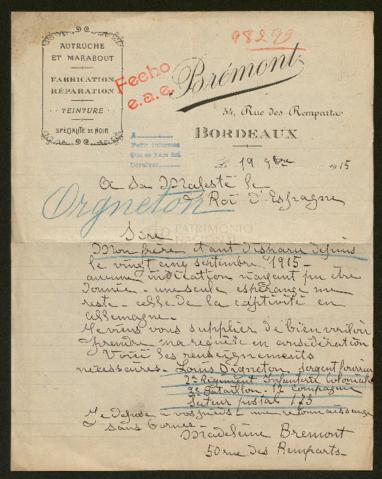 AUTRUCHE
ET MARABOUT
FABRICATION
RÉPARATION
TEINTURE
SPÉCIALITÉ DE NOIR
98299
Fecho
e.a.e.
Brémont
54, Rue des Remparts
BORDEAUX
Le 19 9bre 1915
A Sa Majesté le
Roi d'Espagne
Orgneton
PATRIMONIO
Sire
Mon frère étant disparu depuis
le vingt cinq septembre 1915 -
aucune indication n'ayant pu être
donnée - une seule espérance me
reste - celle de la captivité en
Allemagne -
Je viens vous supplier de bien vouloir
prendre ma requête en considération
Voici les renseignements
nécessaires - Louis Orgneton sergent fourrier
2e Régiment Infanterie Coloniale
Bataillon - 12 Compagnie
Secteur postal 173
Je dépose à vos pieds une reconnaissance
sans bornes -
Madeleine Bremont
50 rue des Remparts -